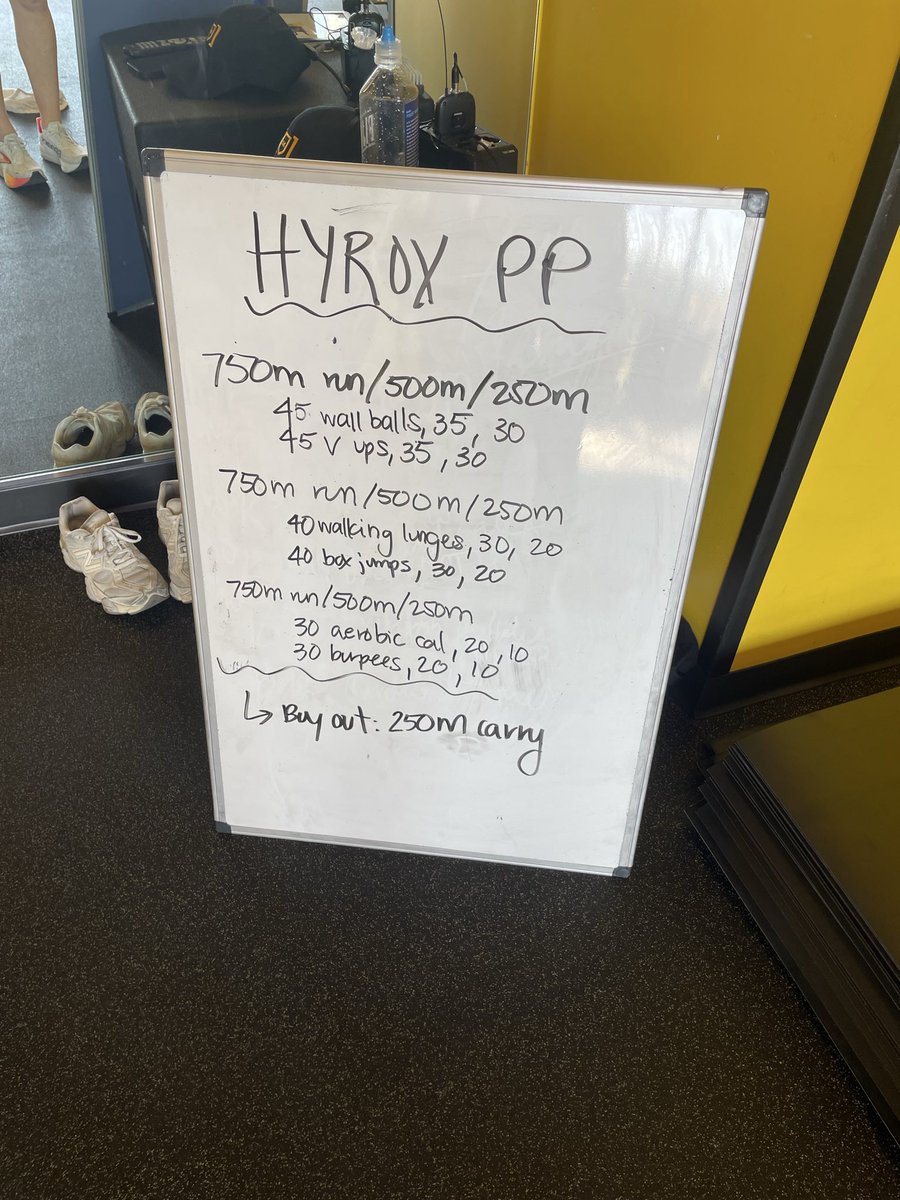 HYROX PP
750m run/500m/250m
45 wall balls, 35, 30
45 V ups, 35, 30
750m run/500m/250m
40 walking lunges, 30, 20
40 box jumps, 30, 20
750m run/500m/250m
30 aerobic cal, 20, 10
30 burpees, 20, 10
↳ Buy out: 250M carry